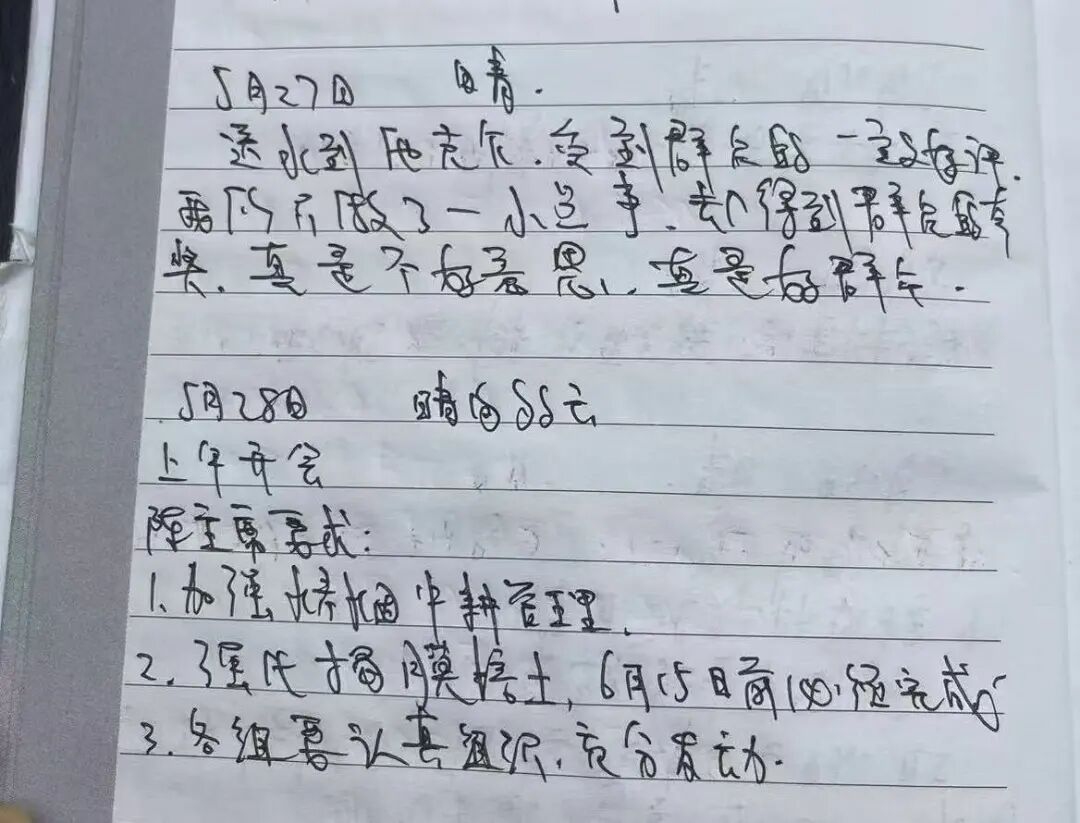 5月27日 晴.
送水到地克尔.受到群众的一致好评.
我们只做了一小点事.却得到群众的夸
奖.真是不好意思.真是好群众.
5月28日 晴间多云
上午开会
陈主席要求:
1.加强烤烟中耕管理.
2.强化揭膜培土,6月15日前必须完成
3.各组要认真组织.充分发动.